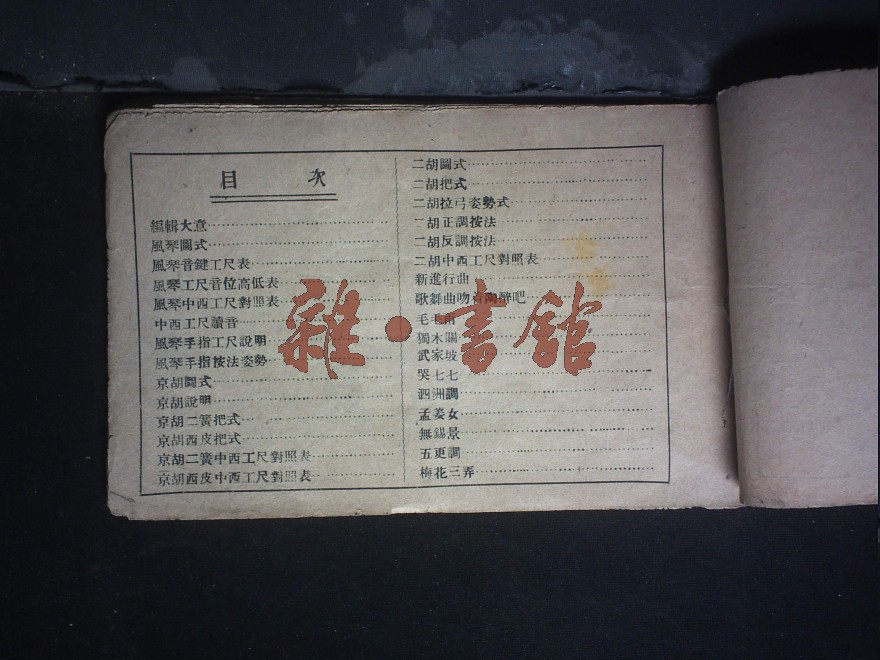 目 次
編輯大意
風琴圖式
風琴音鍵工尺表
風琴工尺音位高低表
風琴中西工尺對照表
中西工尺讀音
風琴手指工尺說明
風琴手指按法姿勢
京胡圖式
京胡說明
京胡二簧把式
京胡西皮把式
京胡二簧中西工尺對照表
京胡西皮中西工尺對照表
二胡圖式
二胡把式
二胡拉弓姿勢式
二胡正調按法
二胡反調按法
二胡中西工尺對照表
新進行曲
歌舞曲吻着陶醉吧
毛毛雨
獨木關
武家坡
哭七七
泗洲調
孟姜女
無錫景
五更調
梅花三弄
雜·書館